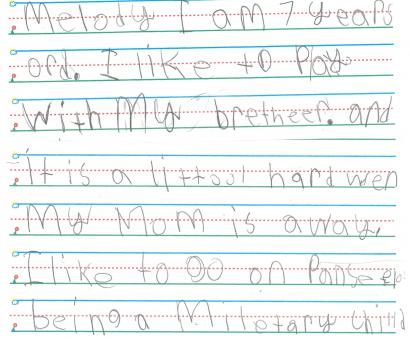 Melody I am 7 years
ord. I like to Play
with My bretheer. and
it is a littool hard wen
My Mom is away.
I like to go on
being a Miletary child